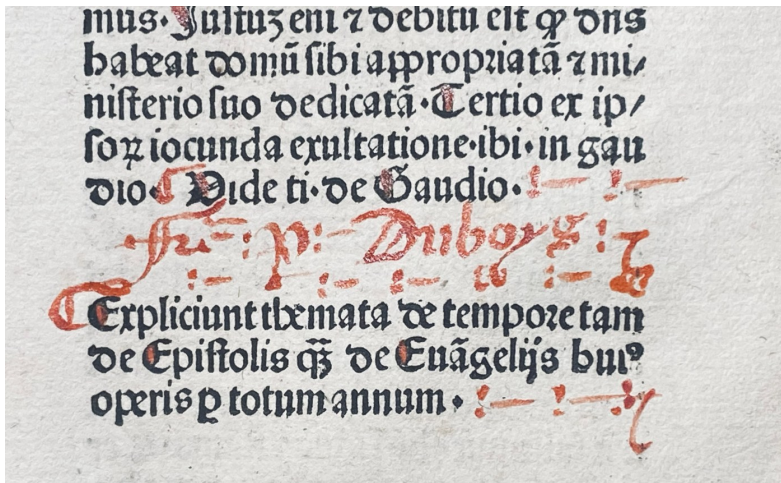 mus. Iustuʒ eni ⁊ debitū est ꝙ dn̄s
habeat domū sibi appropriatā ⁊ mi/
nisterio suo dedicatā. Tertio ex ip/
soꝝ iocunda exultatione. ibi. in gau
dio. Vide ti. de Gaudio.
Duboys
Expliciunt themata de tempore tam
de Epistolis qʒ̄ de Euāgelijs huiꝰ
operis ꝑ totum annum.